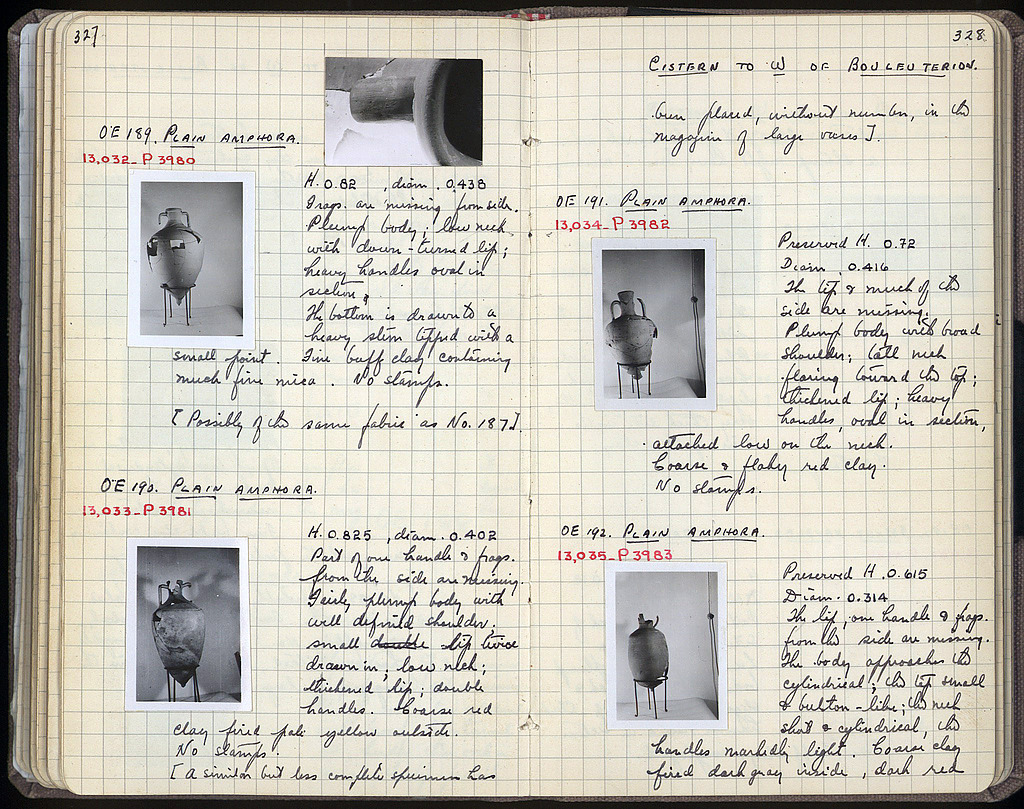 327
OE 189. PLAIN AMPHORA.
13,032 - P 3980
H. 0.82 , diam. 0.438
Frags. are missing from side.
Plump body; low neck
with down-turned lip;
heavy handles oval in
section.
The bottom is drawn to a
heavy stem tipped with a
small point. Fine buff clay containing
much fine mica. No stamps.
[Possibly of the same fabric as No. 187].
OE 190. PLAIN AMPHORA.
13,033 - P 3981
H. 0.825 , diam. 0.402
Part of one handle & frags.
from the side are missing.
Fairly plump body with
well defined shoulder.
small double tip twice
drawn in; low neck;
thickened lip; double
handles. Coarse red
clay fired pale yellow outside.
No stamps.
[A similar but less complete specimen has
328
CISTERN TO W OF BOULEUTERION.
been placed, without number, in the
magazine of large vases].
OE 191. PLAIN AMPHORA.
13,034 - P 3982
Preserved H. 0.72
Diam. 0.416
The tip & much of the
side are missing.
Plump body with broad
shoulder; tall neck
flaring toward the top;
thickened lip; heavy
handles, oval in section,
attached low on the neck.
Coarse & flaky red clay.
No stamps.
OE 192. PLAIN AMPHORA.
13,035 - P 3983
Preserved H. 0.615
Diam. 0.314
The lip, one handle & frags.
from the side are missing.
The body approaches the
cylindrical; the tip small
& button-like; the neck
short & cylindrical, the
handles markedly light. Coarse clay
fired dark gray inside, dark red